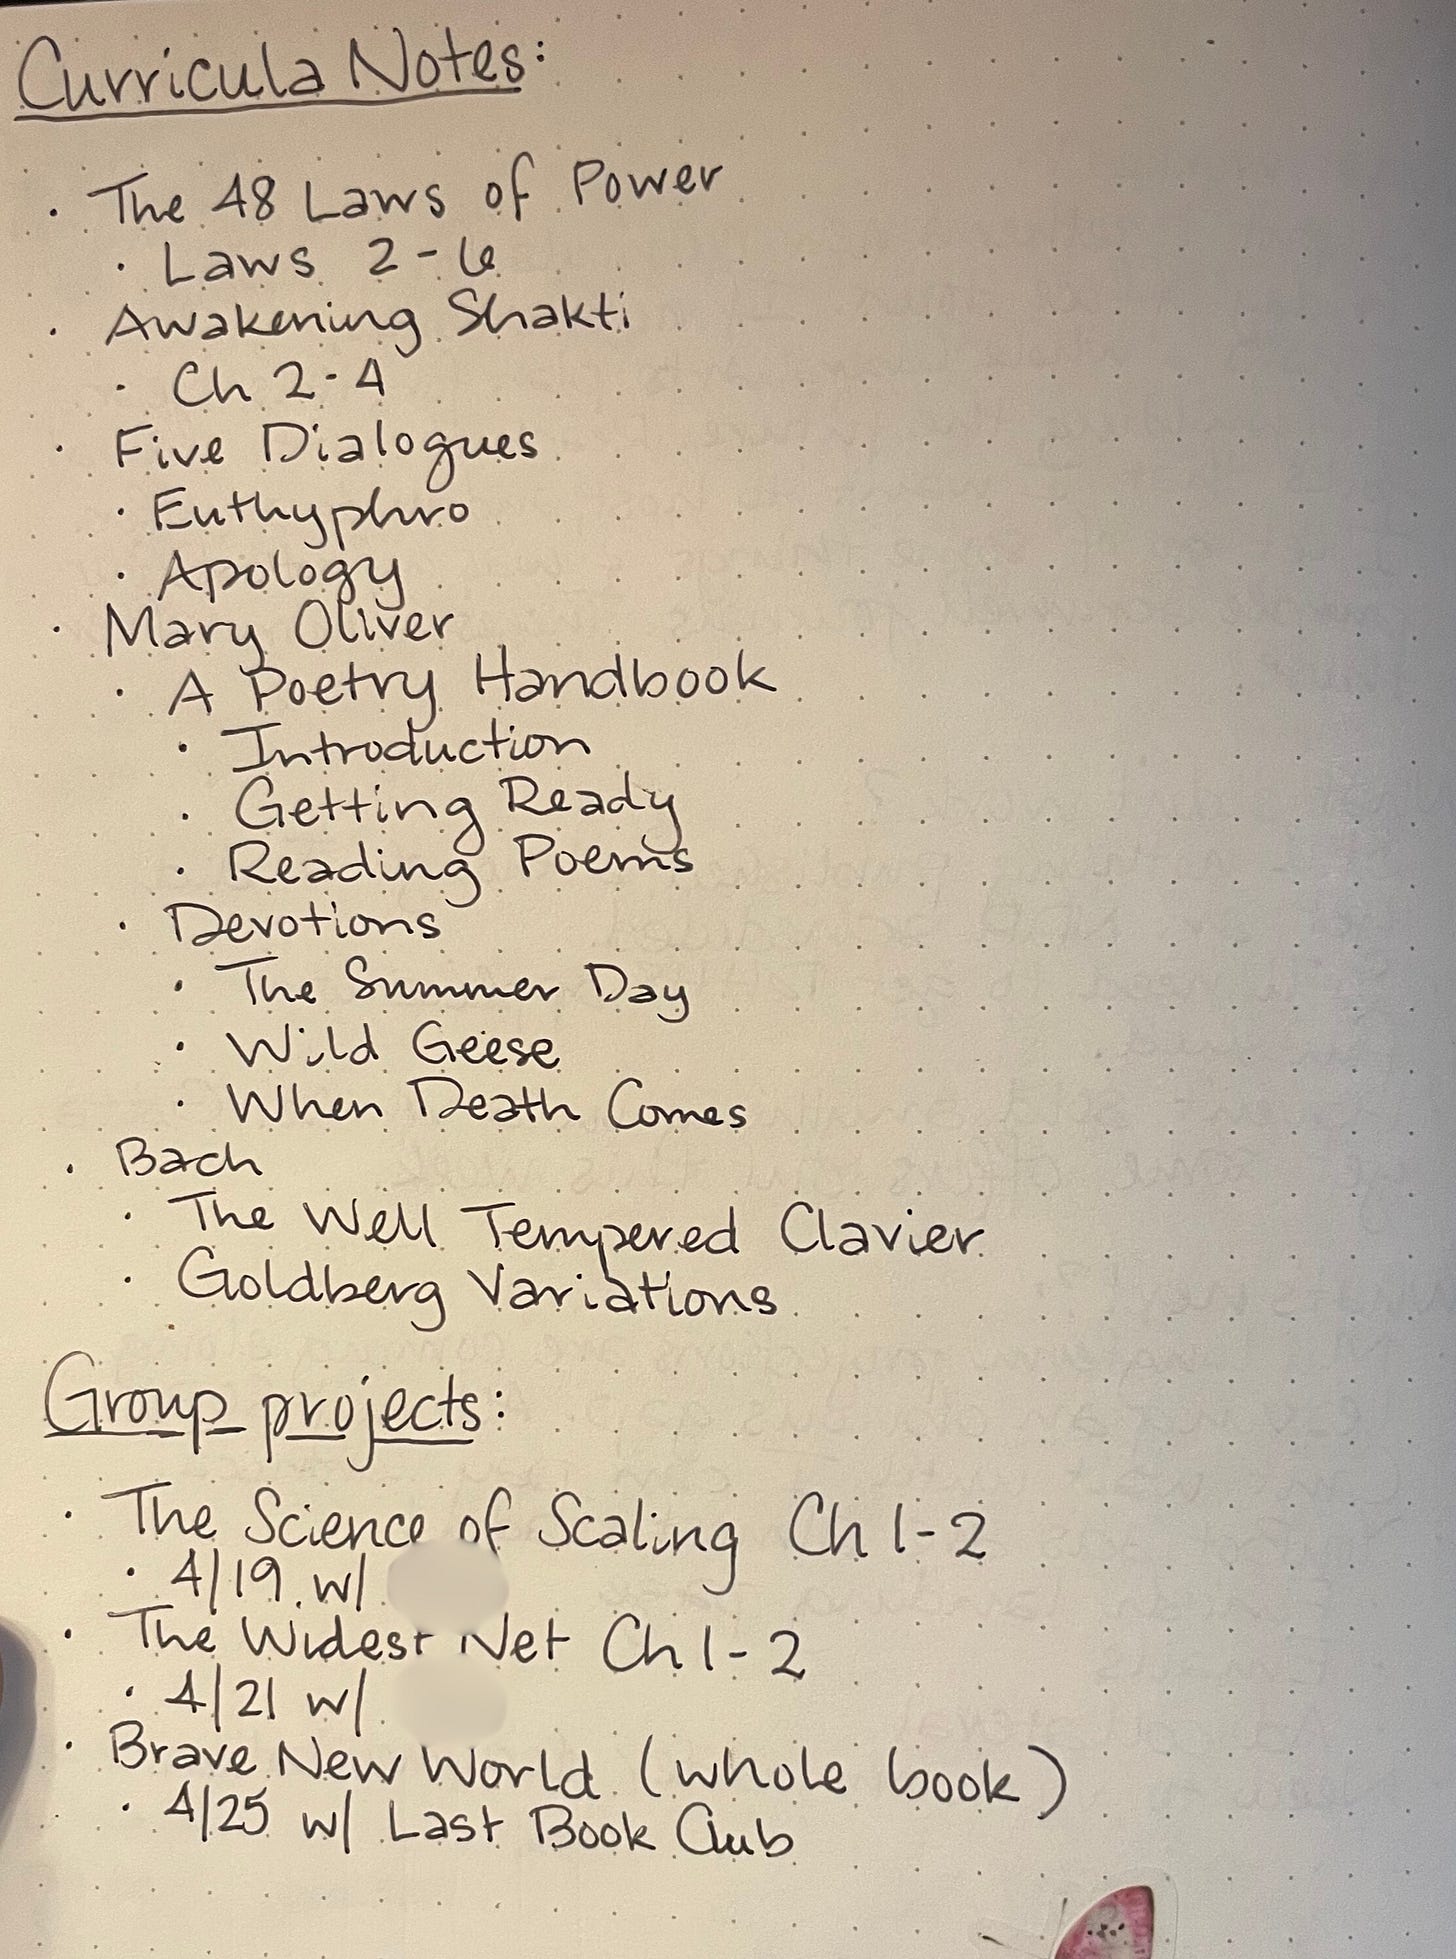 Curricula Notes:
· The 48 Laws of Power
· Laws 2-6
· Awakening Shakti
· Ch 2-4
· Five Dialogues
· Euthyphro
· Apology
· Mary Oliver
· A Poetry Handbook
· Introduction
· Getting Ready
· Reading Poems
· Devotions
· The Summer Day
· Wild Geese
· When Death Comes
· Bach
· The Well Tempered Clavier
· Goldberg Variations
Group projects:
· The Science of Scaling Ch 1-2
· 4/19 w/
· The Widest Net Ch 1-2
· 4/21 w/
· Brave New World (whole book)
· 4/25 w/ Last Book Club